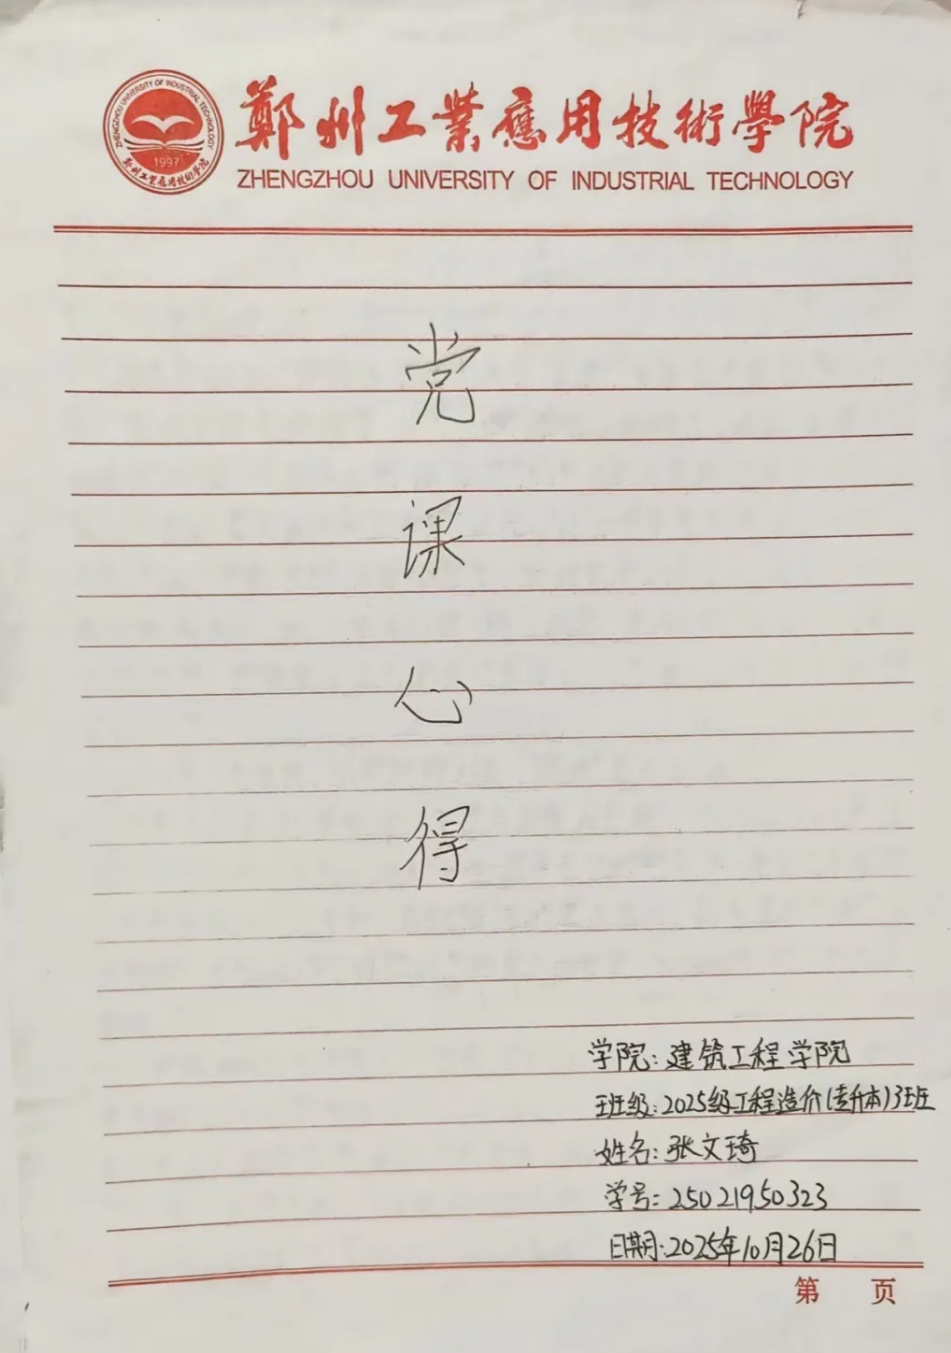 鄭州工業應用技術學院
ZHENGZHOU UNIVERSITY OF INDUSTRIAL TECHNOLOGY
ZHENGZHOU UNIVERSITY OF INDUSTRIAL TECHNOLOGY
1997
鄭州工業應用技術學院
党
课
心
得
学院:建筑工程学院
班级:2025级工程造价(专升本)3班
姓名:张文琦
学号:25021950323
日期:2025年10月26日
第 页